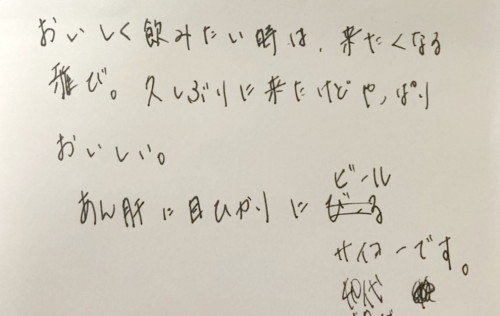 おいしく飲みたい時は、来たくなる
雅び。久しぶりに来たけどやっぱり
おいしい。
ビール
あん肝に目ひかりに
サイコーです。